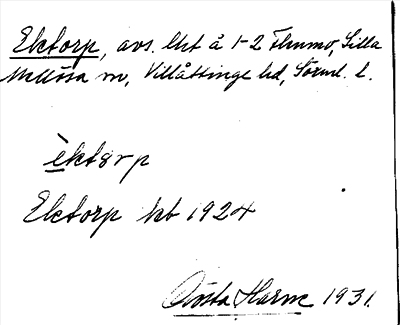 Ektorp, avs. lht å 1-2 Flummo, Lilla
Mellösa sn, Villåttinge hd, Sörml. l.
èktɔrp
Ektorp kb 1924
Gösta Harne 1931.